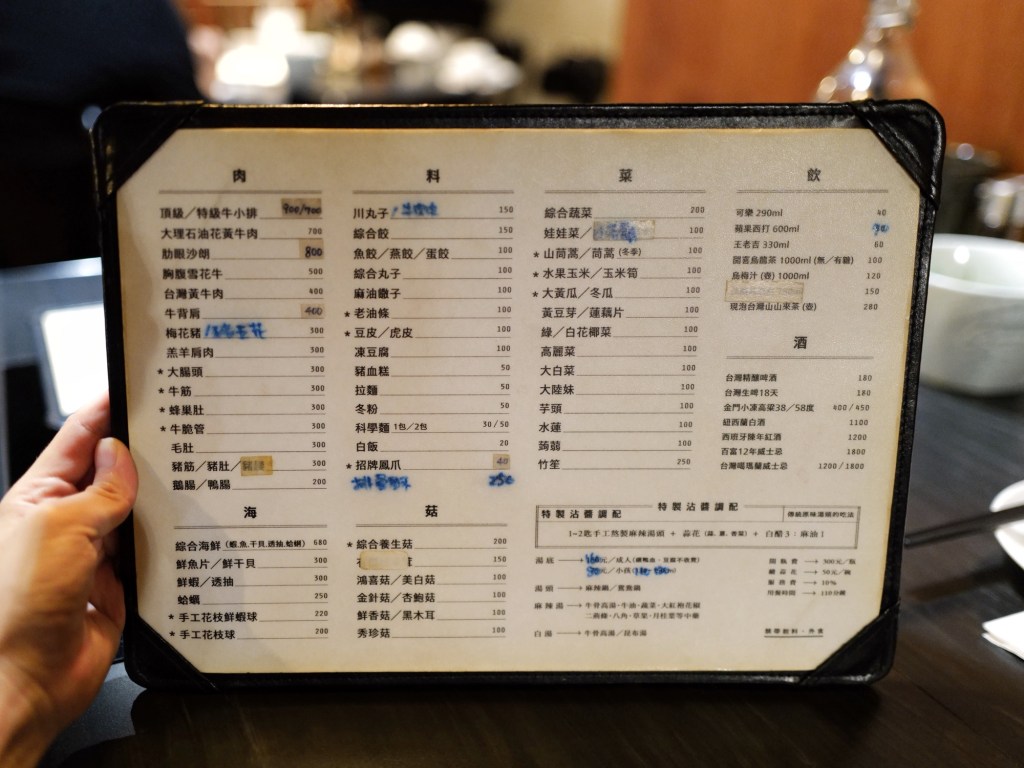 肉
頂級／特級牛小排 900/700
大理石油花黃牛肉 700
肋眼沙朗 800
胸腹雪花牛 500
台灣黃牛肉 400
牛背肩 400
梅花豬 300
羔羊肩肉 300
★大腸頭 300
★牛筋 300
★蜂巢肚 300
★牛脆管 300
毛肚 300
豬筋／豬肚／ 300
鵝腸／鴨腸 200
海
綜合海鮮（蝦,魚,干貝,透抽,蛤蠣） 680
鮮魚片／鮮干貝 300
鮮蝦／透抽 300
蛤蠣 250
★手工花枝鮮蝦球 220
★手工花枝球 200
料
川丸子 150
綜合餃 150
魚餃／燕餃／蛋餃 100
綜合丸子 100
麻油饊子 100
★老油條 100
★豆皮／虎皮 100
凍豆腐 100
豬血糕 50
拉麵 50
冬粉 50
科學麵 1包／2包 30/50
白飯 20
★招牌鳳爪 40
250
菇
★綜合養生菇 200
100
鴻喜菇／美白菇 100
金針菇／杏鮑菇 100
鮮香菇／黑木耳 100
秀珍菇 100
菜
綜合蔬菜 200
娃娃菜／ 100
★山茼蒿／茼蒿 (冬季) 100
★水果玉米／玉米筍 100
★大黃瓜／冬瓜 100
黃豆芽／蓮藕片 100
綠／白花椰菜 100
高麗菜 100
大白菜 100
大陸妹 100
芋頭 100
水蓮 100
蒟蒻 100
竹笙 250
飲
可樂 290ml 40
蘋果西打 600ml
王老吉 330ml 60
開喜烏龍茶 1000ml (無／有糖) 100
烏梅汁 (壺) 1000ml 120
150
現泡台灣山山來茶 (壺) 280
酒
台灣精釀啤酒 180
台灣生啤18天 180
金門小凍高粱38／58度 400／450
紐西蘭白酒 1100
西班牙陳年紅酒 1200
百富12年威士忌 1800
台灣噶瑪蘭威士忌 1200／1800
特製沾醬調配
特製沾醬調配
傳統原味湯頭的吃法
1~2匙手工熬製麻辣湯頭 + 蒜花（蒜, 蔥, 香菜） + 白醋3：麻油1
湯底 → 元／成人（續鴨血．豆腐不收費）
元／小孩
湯頭 → 麻辣鍋／鴛鴦鍋
麻辣湯 → 牛骨高湯、牛油、蔬菜、大紅袍花椒
二荊條、八角、草菓、月桂葉等中藥
白湯 → 牛骨高湯／昆布湯
開瓶費 → 300元／瓶
續蒜花 → 50元／碗
服務費 → 10%
用餐時間 → 110分鐘
禁帶飲料．外食